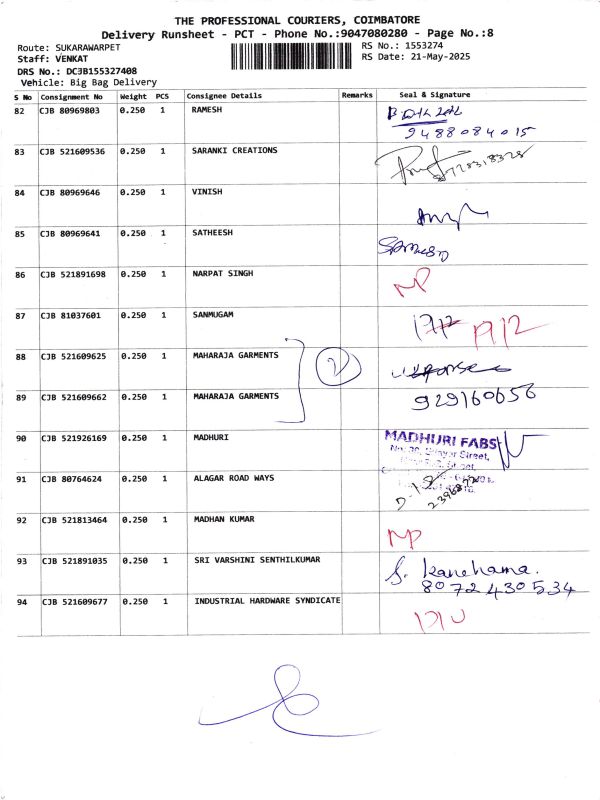 THE PROFESSIONAL COURIERS, COIMBATORE
Delivery Runsheet - PCT - Phone No.:9047080280 - Page No.:8
Route: SUKARAWARPET RS No.: 1553274
Staff: VENKAT RS Date: 21-May-2025
DRS No.: DC3B155327408
Vehicle: Big Bag Delivery
S No Consignment No Weight PCS Consignee Details Remarks Seal & Signature
82 CJB 80969803 0.250 1 RAMESH
9488084015
83 CJB 521609536 0.250 1 SARANKI CREATIONS
8778318328
84 CJB 80969646 0.250 1 VINISH
85 CJB 80969641 0.250 1 SATHEESH
86 CJB 521891698 0.250 1 NARPAT SINGH NP
87 CJB 81037601 0.250 1 SANMUGAM
88 CJB 521609625 0.250 1 MAHARAJA GARMENTS
89 CJB 521609662 0.250 1 MAHARAJA GARMENTS 929160656
90 CJB 521926169 0.250 1 MADHURI MADHURI FABS
Street,
91 CJB 80764624 0.250 1 ALAGAR ROAD WAYS
92 CJB 521813464 0.250 1 MADHAN KUMAR NP
93 CJB 521891035 0.250 1 SRI VARSHINI SENTHILKUMAR S. Kanchama.
8072430534
94 CJB 521609677 0.250 1 INDUSTRIAL HARDWARE SYNDICATE